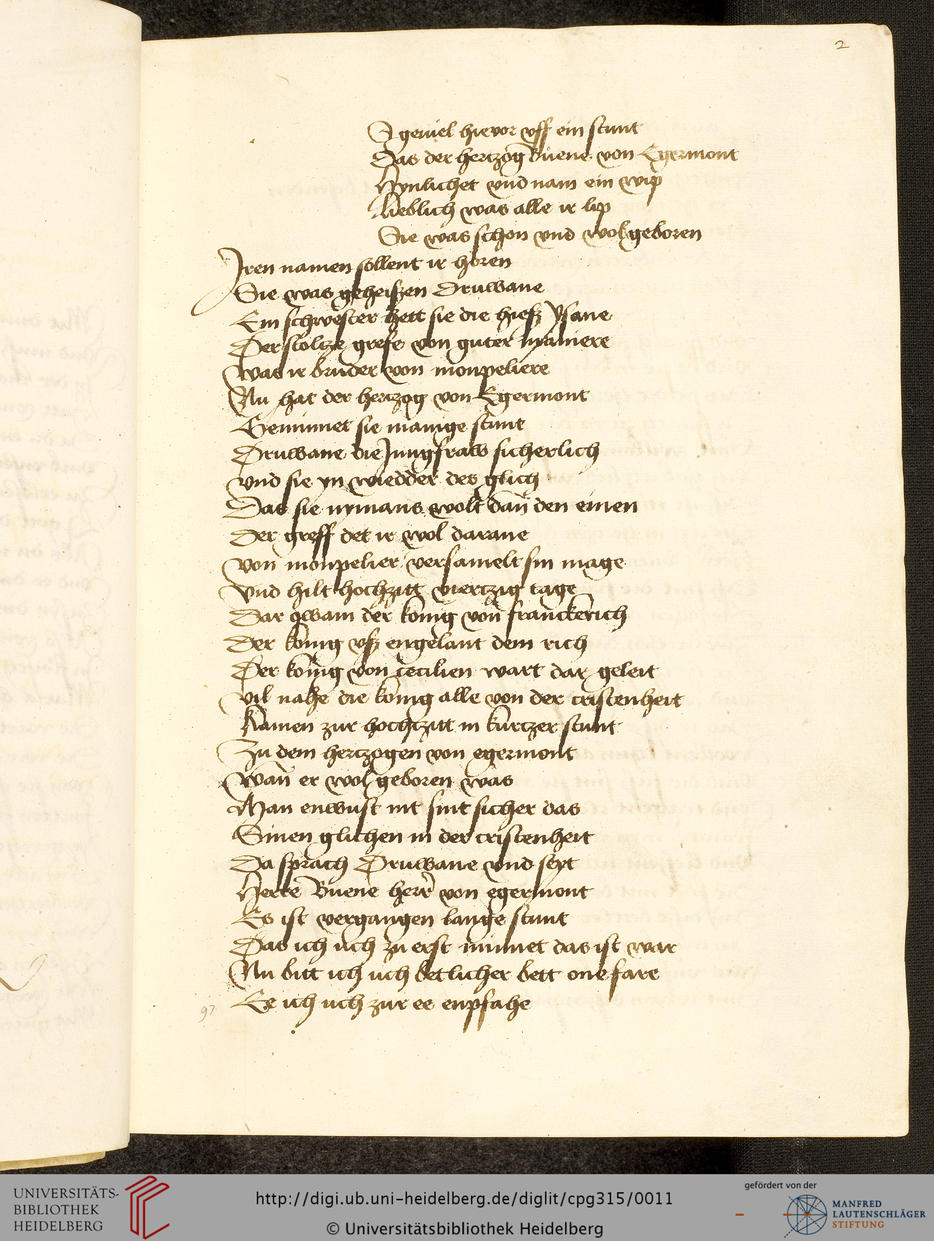 2
Jgeviel hievor vff ein stunt
Das der hertzog Buene von Egermont
Hynlichet vnd nam ein wip
Lieblich was alle ir lip
Sie was schon vnd wolgeboren
Iren namen sollent ir horen
Sie was geheißen Druwane
Ein schwester hett sie die hieß ysane
Der stoltze grefe von guter maniere
Was ir bruder von monpeliere
Nu hat der hertzog von Egermont
Geminnet sie manige stunt
Druwane die Jungfraw sicherlich
Vnd sie yn wiedder des glich
Das sie nymans wolt dan den einen
Der greff det ir wol darane
Von monpelier versamelt sin mage
Vnd hilt hochzitt viertzig tage
Dar qwam der konig von franckerich
Der konig vß engelant dem rich
Der konig von cecilien wart dar geleit
Vil nahe die konig alle von der cristenheit
Kamen zur hochtzitt in kurtzer stunt
Zu dem hertzogen von egermont
Wan er wolgeboren was
Man enwust nit sint sicher das
Sinen glichen in der cristenheit
Da sprach Druwane vnd seyt
Herre Buene herr von egermont
Es ist vergangen lange stunt
Das ich uch zu erst minnet das ist war
Nu bitt ich uch betlicher bett one fare
Ee ich uch zur ee enpfahe
97
UNIVERSITÄTS-
BIBLIOTHEK
HEIDELBERG
http://digi.ub.uni-heidelberg.de/diglit/cpg315/0011
© Universitätsbibliothek Heidelberg
gefördert von der
MANFRED
LAUTENSCHLÄGER
STIFTUNG